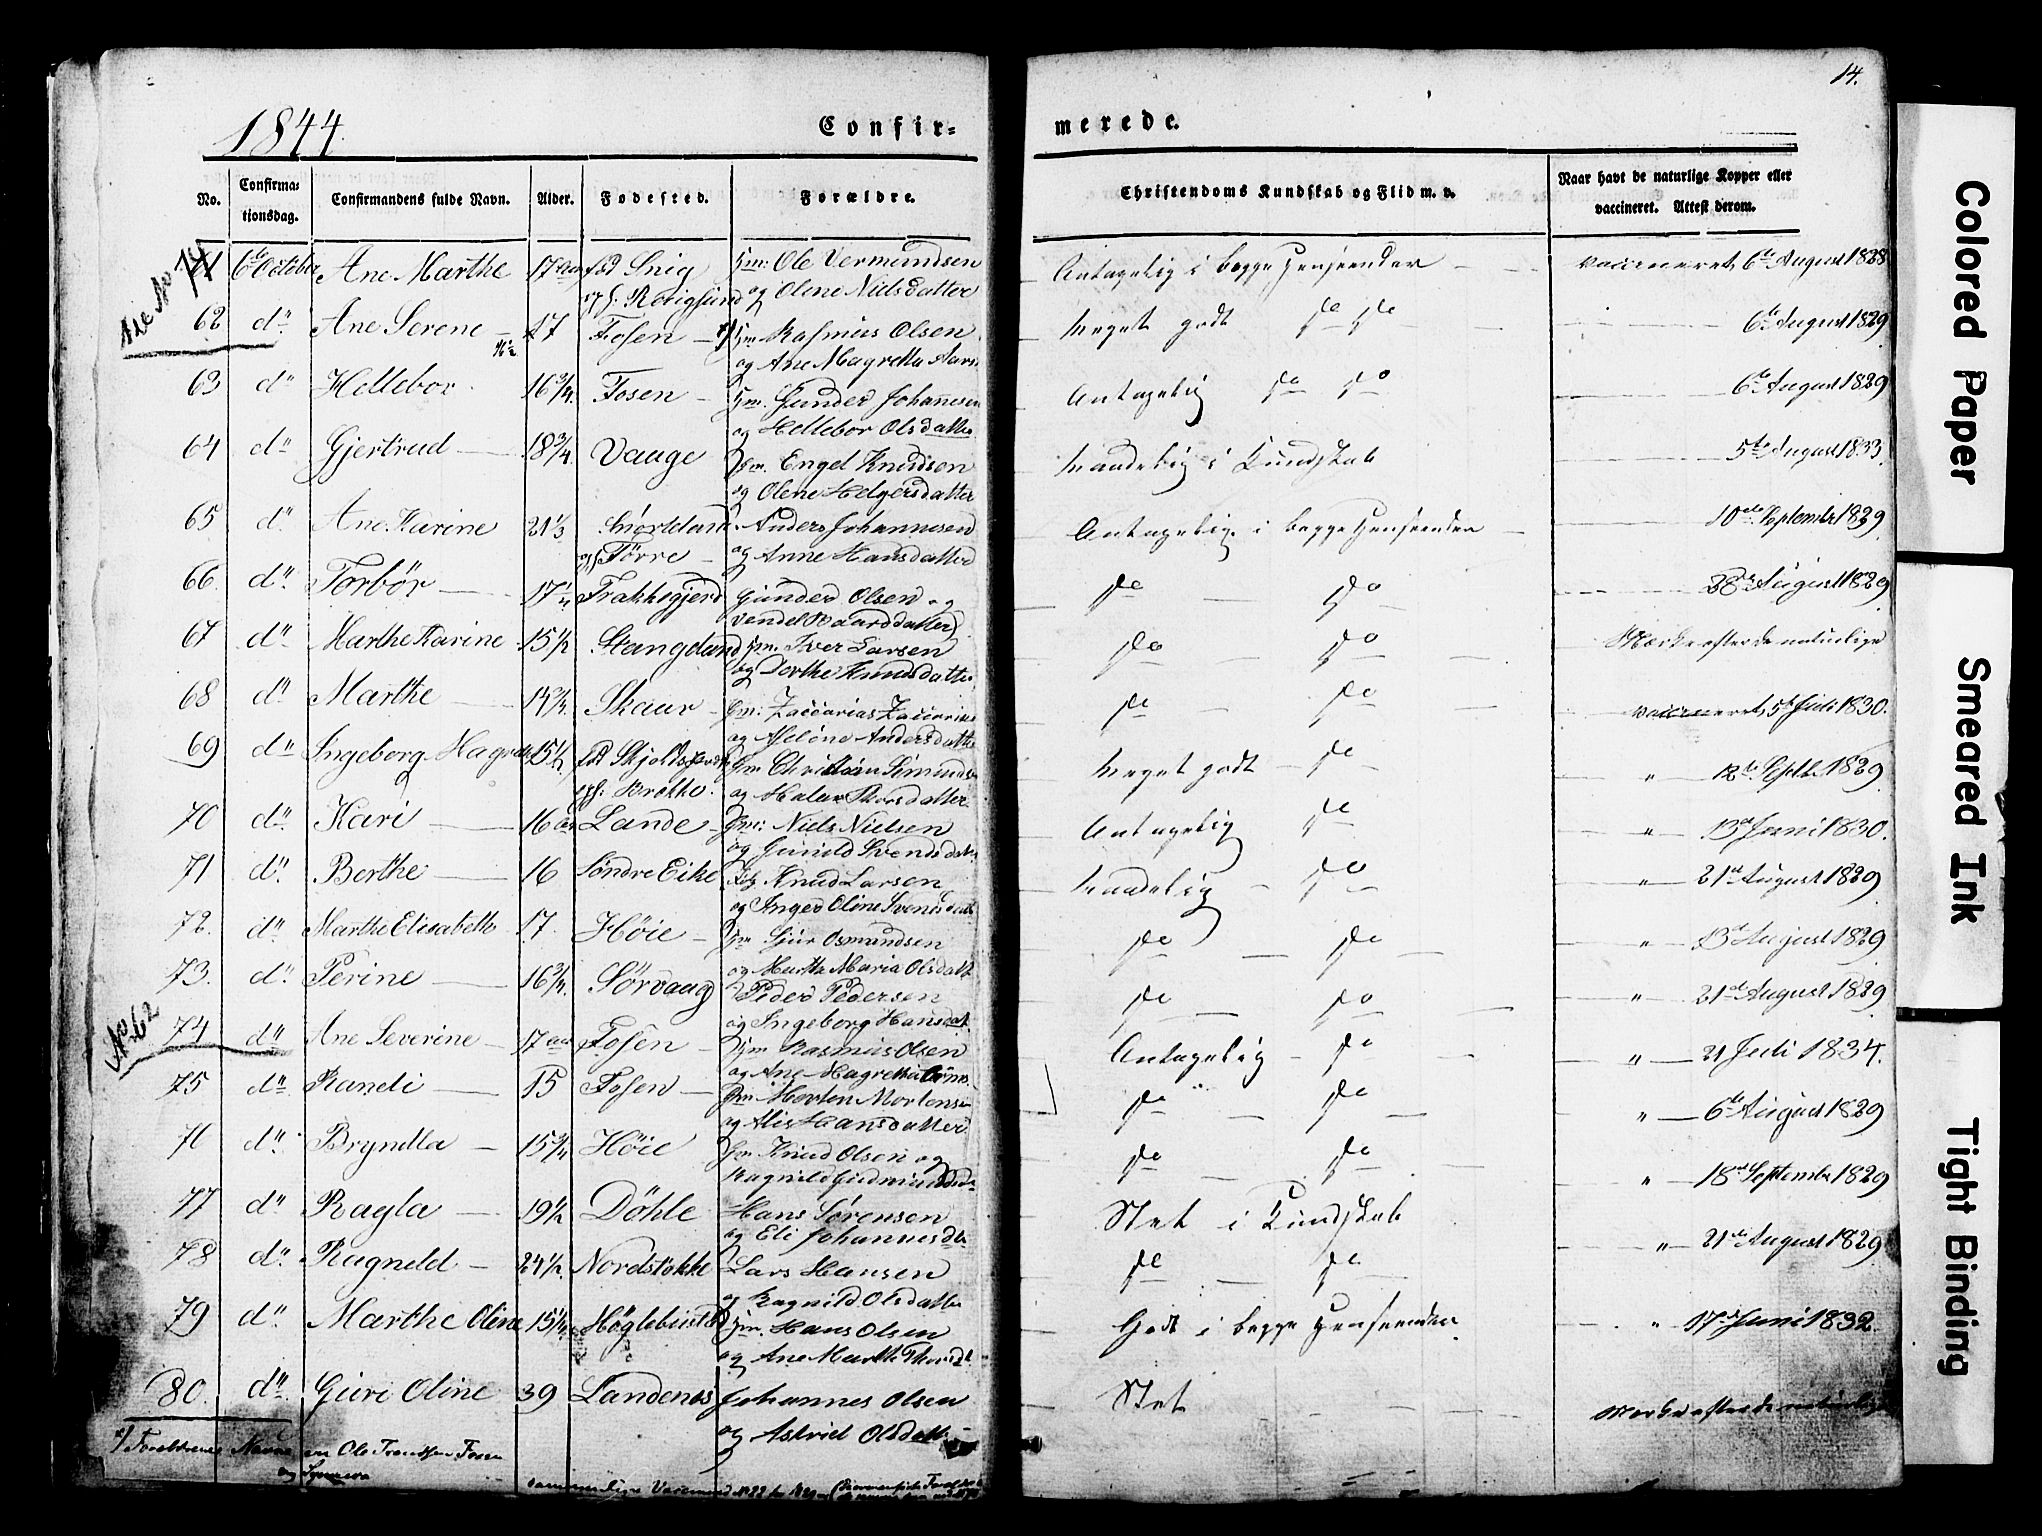 14.
1844.
Confir-
merede.
No.
Confirma-
tionsdag.
Confirmandens fulde Navn.
Alder.
Fødested.
Forældre.
Christendoms Kundskab og Flid m. v.
Naar havt de naturlige Kopper eller
vaccineret. Attest derom.
61 6te October Ane Marthe 17 aar fød Snig Gm: Ole Vermundsen Antagelig i begge Henseender vaccineret 6te August 1828
og Olene Nielsdatter
62 do Ane Serene 17 Fosen Gm Rasmus Olsen Meget godt do do 6te August 1829
16½
og Ane Magretta
63 do Hellebor 16¾ Fosen Gm. Gunder Johannesen Antagelig do do 6te August 1829
og Hellebor Olsdatter
64 do Gjertrud 18¾ Vaage Gm. Engel Knudsen Maadelig i Kundskab 5te August 1833
og Olene Helgersdatter
65 do Ane Karine 21⅓ Anders Johannesen Antagelig i begge Henseender 10de Septembr 1829
Førre og Anne Hansdatter
66 do Torbør 17¼ Frakkagjerd Gunder Olsen og do do 28de August 1829
67 do Marthe Karine 15½ Stangeland Gm. Iver Larsen do do Mærke efter de naturlige
og Dorthe Knudsdatter
68 do Marthe 14¾ Skaar Gm: Zaccarias do do vaccineret 5te Juli 1830.
og Andersdatter
69 do Ingeborg Magrete 15½ fød Meget godt do " 12te Septbr. 1829
70 do Kari 16 aar Lande Gm: Niels Nielsen Antagelig do " 13de Juni 1830.
og Gunild
71 do Berthe 16 Søndre Eike Knud Larsen Maadelig do " 21de August 1829
og Inger Oline
72. do Marthe Elisabeth 17. Høie Gm Sjur Osmundsen do do " 13de August 1829
og Marthe Maria Olsdatt
73. do Perine 16¾ Sørvaag Peder Pedersen do do " 21de August 1829
og Ingeborg Hansdat
No 62
74 do Ane Severine 17 aar Fosen Gm Rasmus Olsen Antagelig do " 21 Juli 1834.
og Ane Magretha
75 do Randi 15 Fosen Gm Morten Mortensen do do " 6te August 1829
og Alis Hansdatter
76 do Bryndla 15¾ Høie Gm Knud Olsen og do do " 18de Septembr 1829
77 do Ragla 19½ Døhle Hans Sørensen Slet i Kundskab " 21de August 1829
og Eli Johannesdtr
78 do Ragneld 24½ Nordstokke Lars Hansen do do
og Ragnild Olsdatter
79 do Marthe Oline 15¼ Høglebustd Gm. Hans Olsen Godt i begge Henseender " 17de Juni 1832
og Ane Marthe
80. do Guri Oline 39 Landenes Johannes Olsen Slet Mærke efter de naturlige
og Astrid Olsdatt
Forældrenes Navne er Ole Fosen
Colored Paper
Smeared Ink
Tight Binding